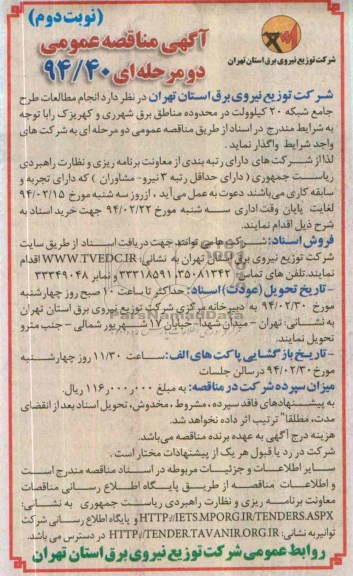 (نوبت دوم)
آگهی مناقصه عمومی
دو مرحله ای ۹۴/۴۰
شرکت توزیع نیروی برق استان تهران
شرکت توزیع نیروی برق استان تهران در نظر دارد انجام مطالعات طرح
جامع شبکه ۲۰ کیلوولت در محدوده مناطق برق شهرری و کهریزک را با توجه
به شرایط مندرج در اسناد از طریق مناقصه عمومی دو مرحله ای به شرکت های
واجد شرایط واگذار نماید.
لذا از شرکت های دارای رتبه بندی از معاونت برنامه ریزی و نظارت راهبردی
ریاست جمهوری (دارای حداقل رتبه ۳ نیرو- مشاوران) که دارای تجربه و
سابقه کاری می‌باشند دعوت به عمل می‌آید، از روز سه شنبه مورخ ۹۴/۰۲/۱۵
لغایت پایان وقت اداری سه شنبه مورخ ۹۴/۰۲/۲۲ جهت خرید اسناد به
شرح ذیل اقدام نمایند.
فروش اسناد: شرکت ها می توانند جهت دریافت اسناد از طریق سایت
شرکت توزیع نیروی برق استان تهران به نشانی: WWW.TVEDC.IR اقدام
نمایند. تلفن های تماس: ۳۵۰۸۱۳۴۲، ۳۳۳۱۸۵۹۱ و نمابر ۳۳۳۴۹۰۴۸
-تاریخ تحویل (عودت) اسناد: حداکثر تا ساعت ۱۰ صبح روز چهارشنبه
مورخ ۹۴/۰۲/۳۰ به دبیرخانه مرکزی شرکت توزیع نیروی برق استان تهران
به نشانی: تهران - میدان شهدا- خیابان ۱۷ شهریور شمالی - جنب مترو
تحویل نمایند.
-تاریخ بازگشایی پاکت های الف: ساعت ۱۱/۳۰ روز چهارشنبه
مورخ ۹۴/۰۲/۳۰ در سالن جلسات
میزان سپرده شرکت در مناقصه: به مبلغ ۱۱۶٫۰۰۰٫۰۰۰ ریال
به پیشنهادهای فاقد سپرده، مشروط، مخدوش، تحویل اسناد بعد از انقضای
مدت، مطلقا" ترتیب اثر داده نخواهد شد.
هزینه درج آگهی به عهده برنده مناقصه می‌باشد.
شرکت در رد یا قبول هر یک از پیشنهادات مختار است.
سایر اطلاعات و جزئیات مربوطه در اسناد مناقصه مندرج است
و اطلاعات مناقصه از طریق پایگاه اطلاع رسانی مناقصات
معاونت برنامه ریزی و نظارت راهبردی ریاست جمهوری به نشانی:
HTTP://IETS.MPORG.IR/TENDERS.ASPX و پایگاه اطلاع رسانی شرکت
توانیر به نشانی: HTTP://TENDER.TAVANIR.ORG.IR در دسترس می باشد.
روابط عمومی شرکت توزیع نیروی برق استان تهران